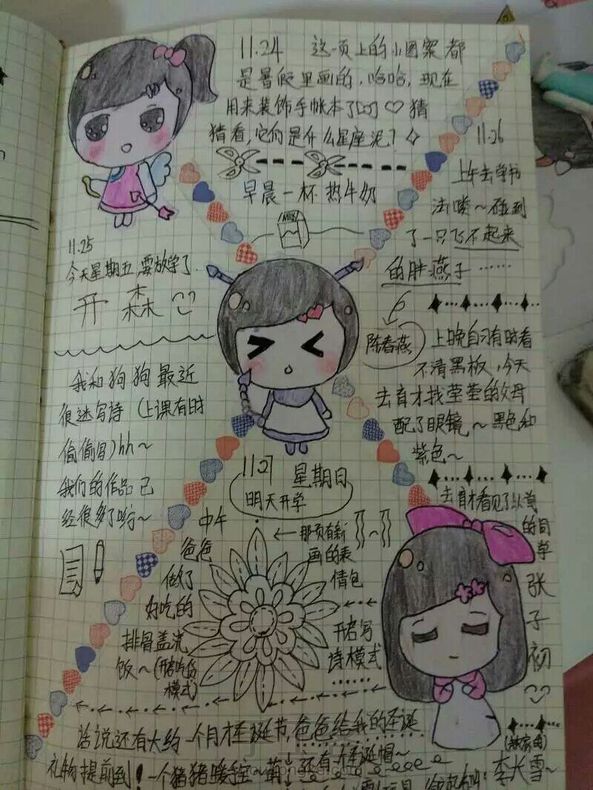 11.24 这一页上的小图案都
是暑假里画的，哈哈，现在
用来装饰手帐本了叮♡猜
猜看，它们是什么星座泥？
早晨一杯热牛奶
11.25
今天星期五要放学了
开森
我和狗狗最近
很迷写诗（上课有时
偷偷写）hh～
我们的作品已
经很多了哟～
11.26
上午去学书
法喽～碰到
了一只飞不起来
的胖燕子……
陈春燕
上晚自习有时看
不清黑板，今天
去育才找莹莹的父母
配了眼镜～黑色和
紫色～
去育才看见了以前
的同学张子初
11.27 星期日
明天开学
中午
爸爸
做了
好吃的
排骨盖浇
饭～（开启吃货
模式）
那页有新
画的表
情包
开启写
诗模式
话说还有大约一个月才圣诞节，爸爸给我的圣诞
礼物提前到！一个猪猪暖手宝～萌！还有圣诞帽～
李长雪～